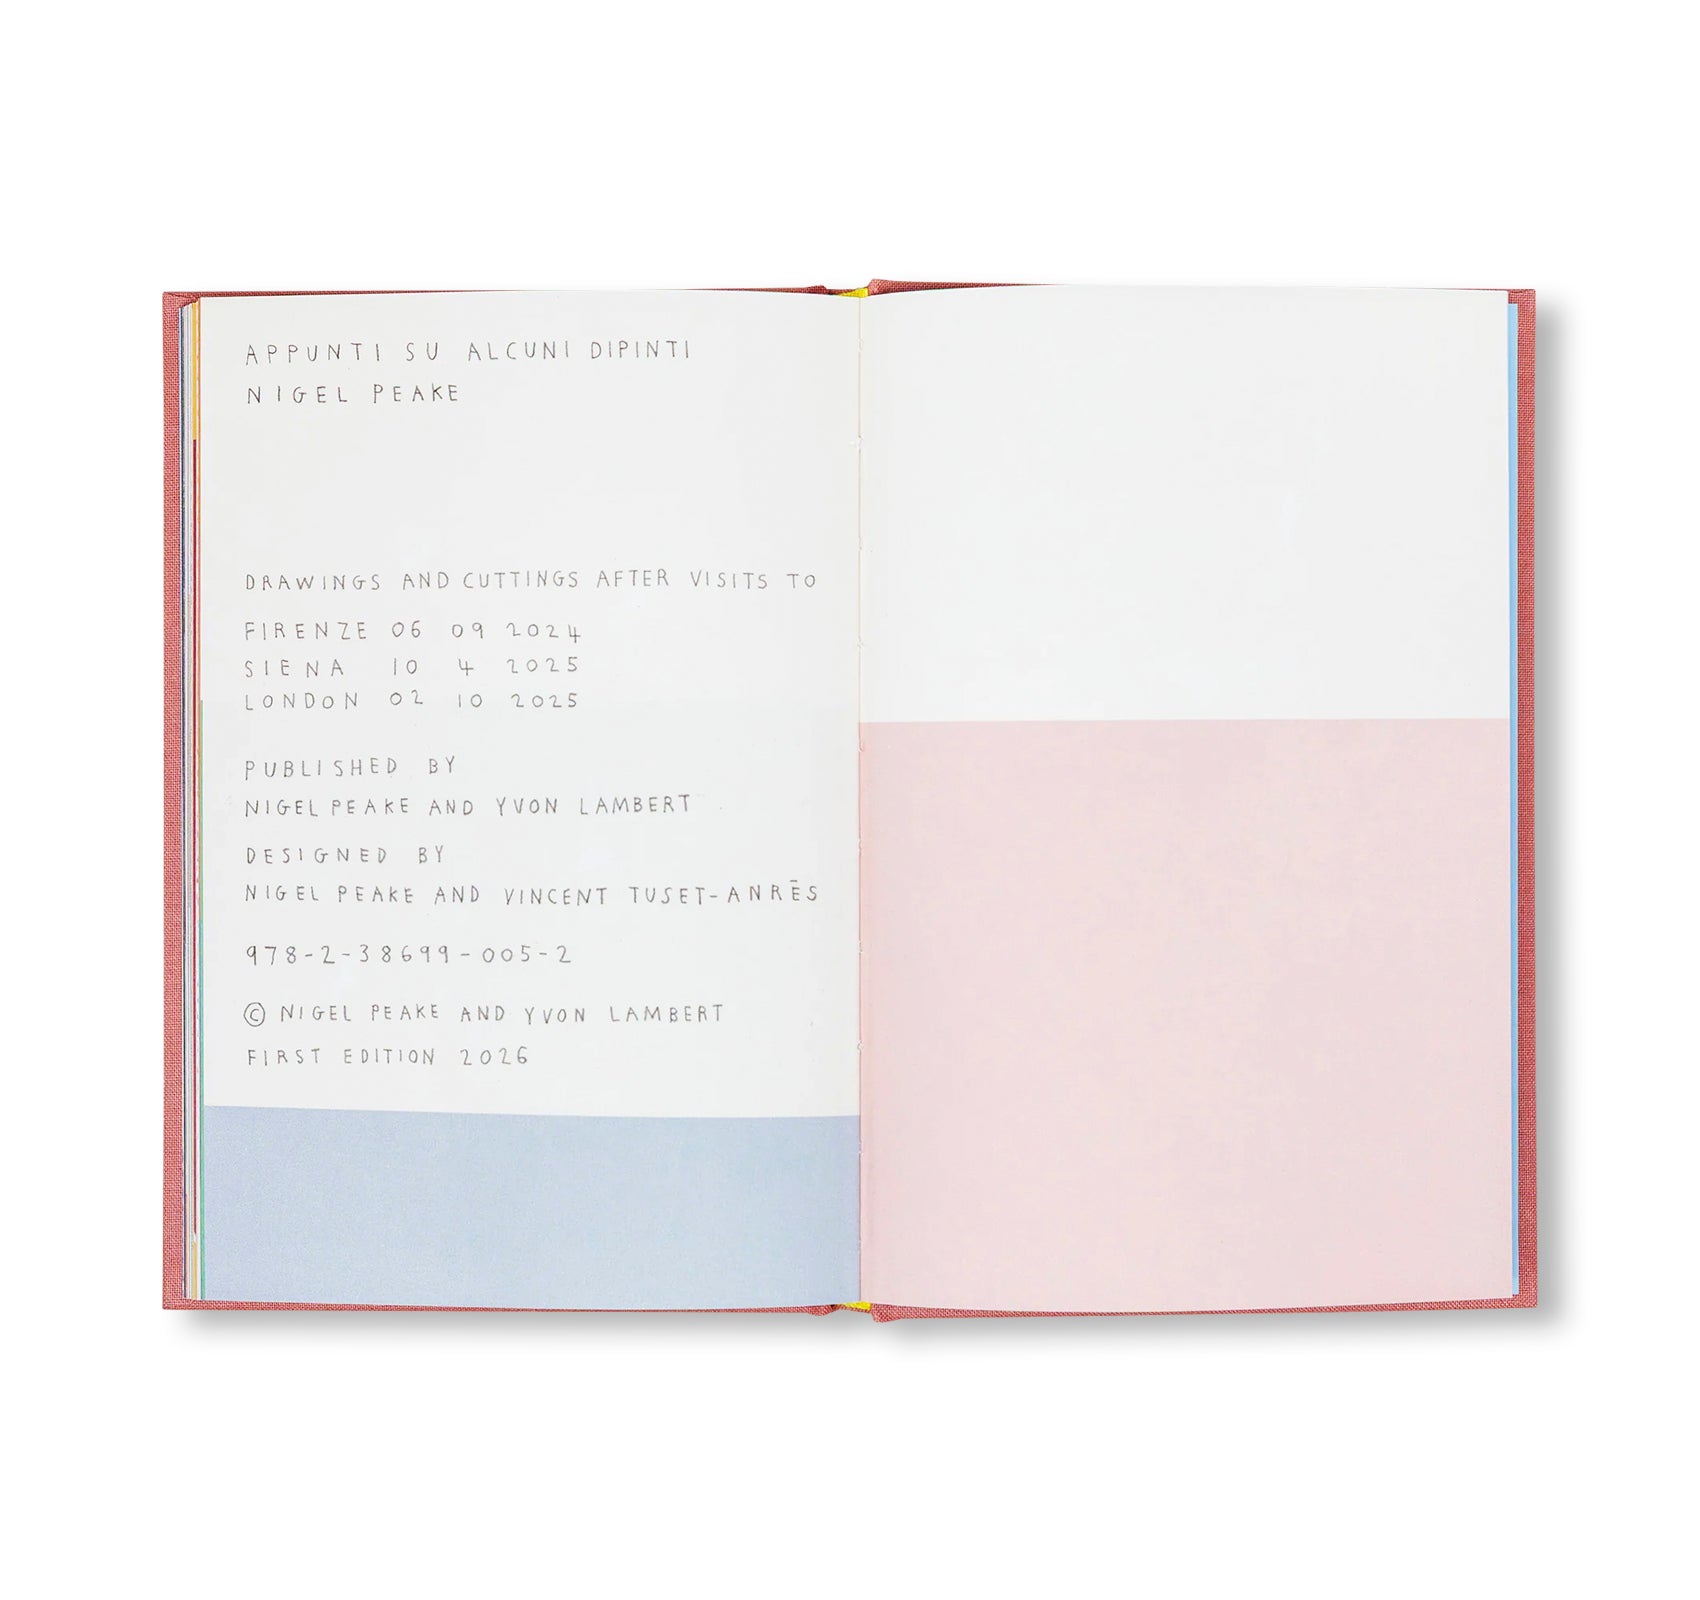 APPUNTI SU ALCUNI DIPINTI
NIGEL PEAKE
DRAWINGS AND CUTTINGS AFTER VISITS TO
FIRENZE 06 09 2024
SIENA 10 4 2025
LONDON 02 10 2025
PUBLISHED BY
NIGEL PEAKE AND YVON LAMBERT
DESIGNED BY
NIGEL PEAKE AND VINCENT TUSET-ANRĒS
978-2-38699-005-2
© NIGEL PEAKE AND YVON LAMBERT
FIRST EDITION 2026